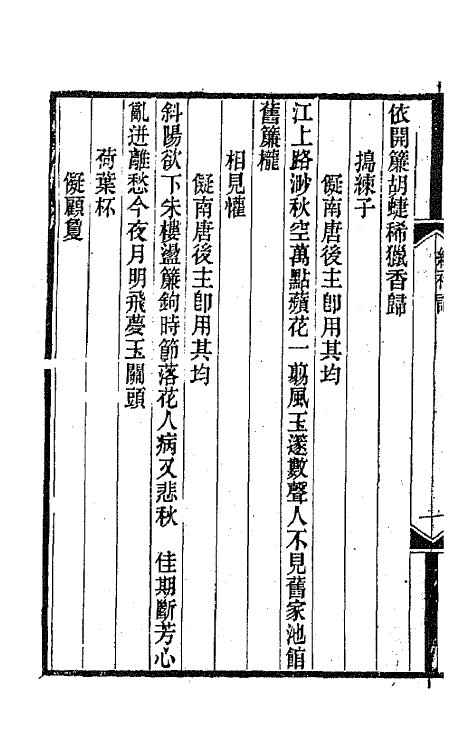 依開簾胡蜨稀獵香歸
搗練子
儗南唐後主卽用其均
江上路渺秋空萬點蘋花一翦風玉邃數聲人不見舊家池館
舊簾櫳
相見懽
儗南唐後主卽用其均
斜陽欲下朱樓盪簾鉤時節落花人病又悲秋　佳期斷芳心
亂迸離愁今夜月明飛夢玉關頭
荷葉杯
儗顧敻